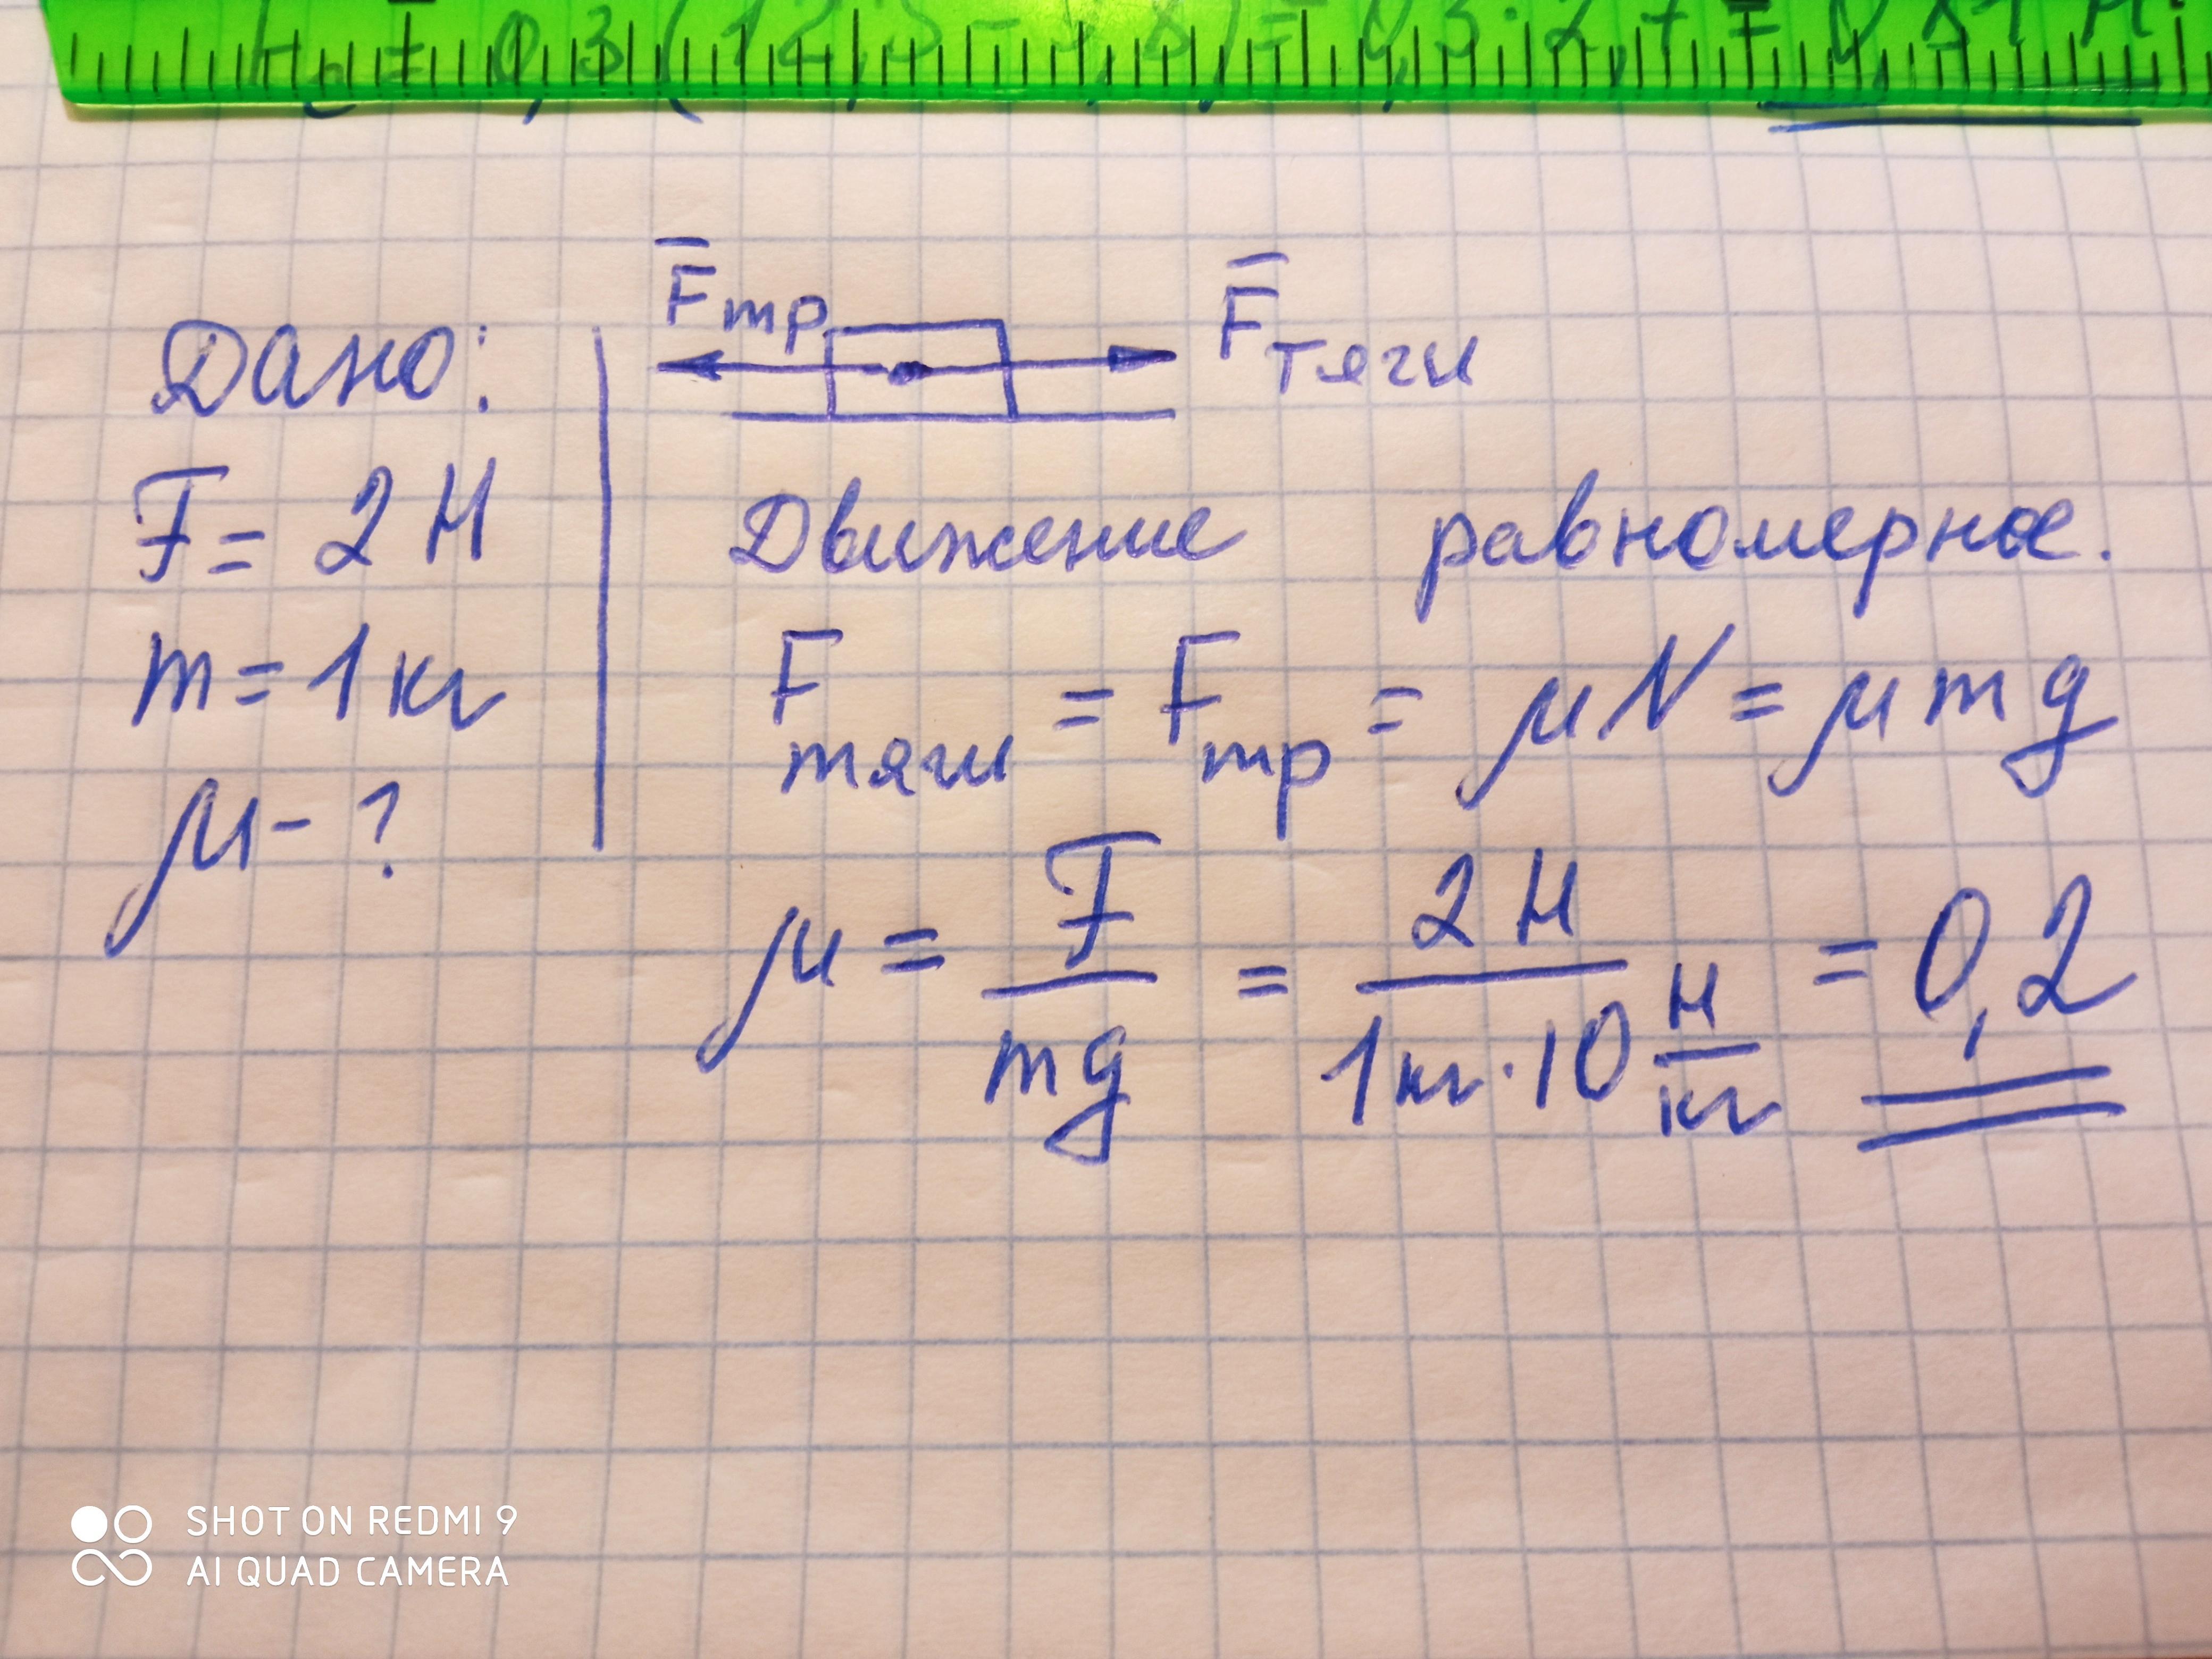 F̅тр F̅тяги
Дано:
F = 2 Н
m = 1 кг
μ - ?
Движение равномерное.
Fтяги = Fтр = μN = μmg
μ = F/mg = 2 Н/(1 кг · 10 Н/кг) = 0,2
SHOT ON REDMI 9
AI QUAD CAMERA